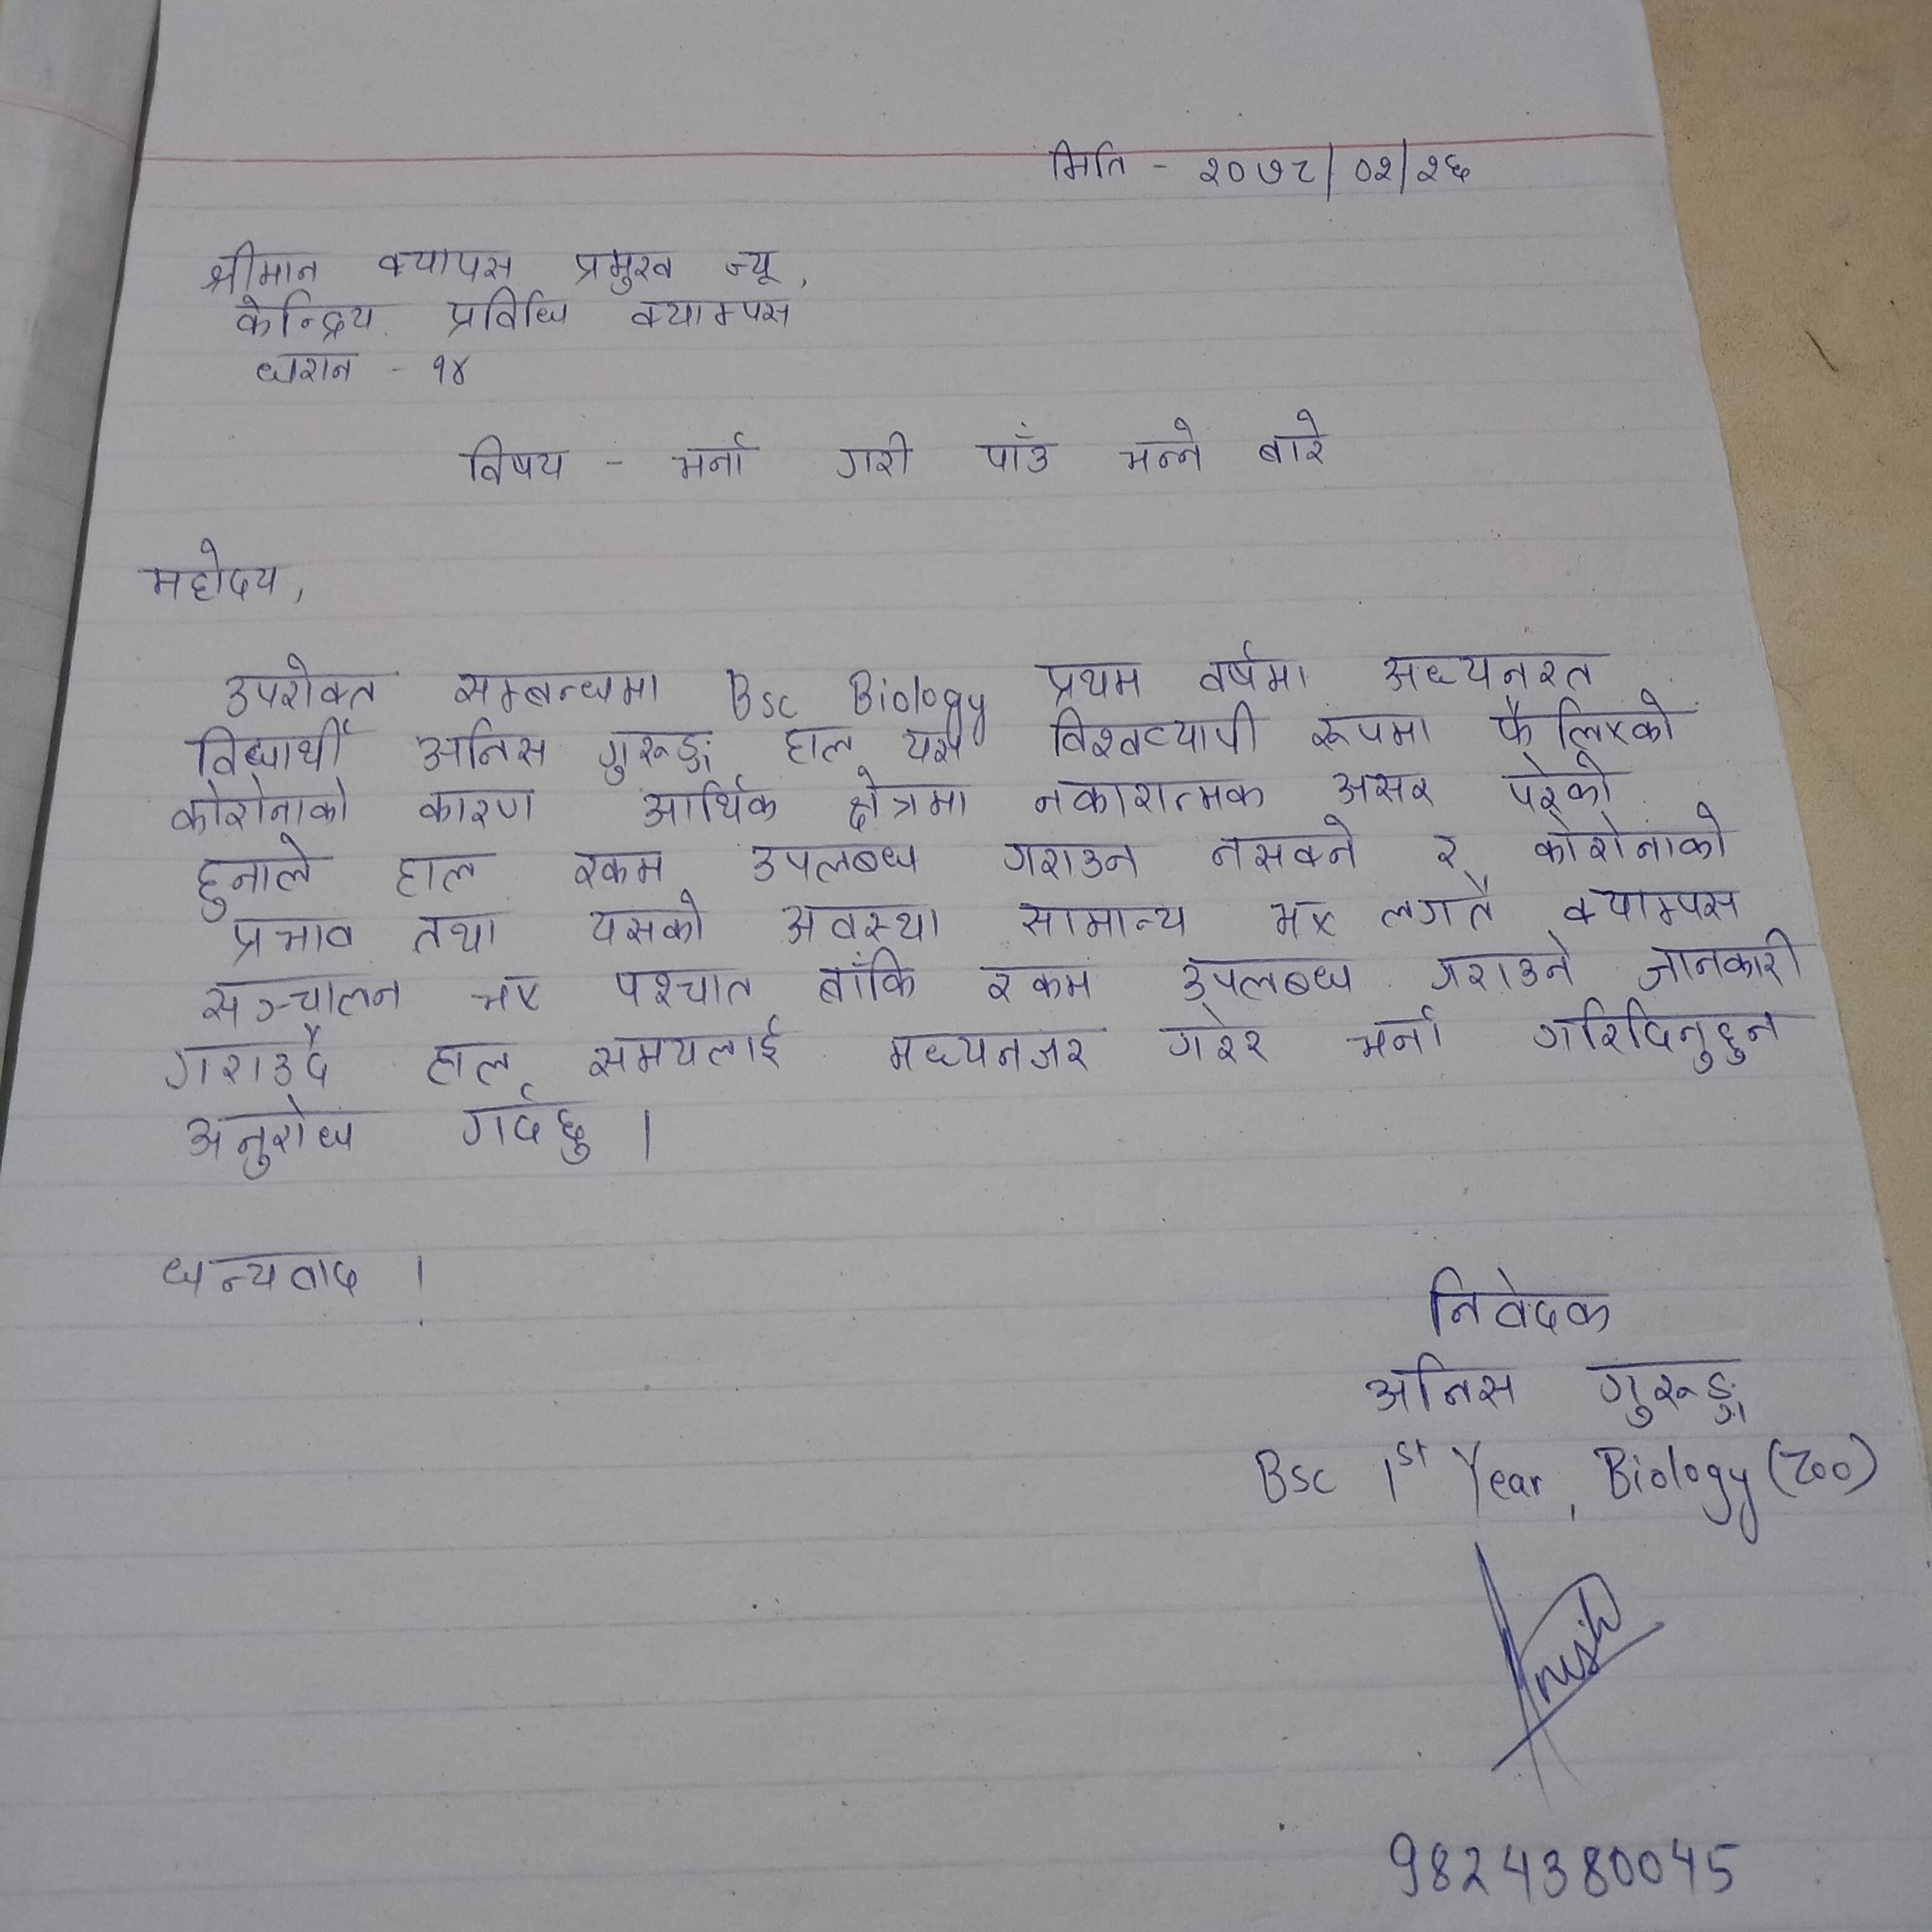 मिति - २०७८/०२/२६
श्रीमान क्यापस प्रमुख ज्यू,
केन्द्रिय प्रविधि क्याम्पस
धरान - १४
विषय - भर्ना गरी पाँउ भन्ने बारे
महोदय,
उपरोक्त सम्बन्धमा Bsc Biology प्रथम वर्षमा अध्यनरत
विद्यार्थी अनिस गुरूङ्ग हाल यस विश्वव्यापी रूपमा फैलिएको
कोरोनाको कारण आर्थिक क्षेत्रमा नकारात्मक असर परेको
हुनाले हाल रकम उपलब्ध गराउन नसक्ने र कोरोनाको
प्रभाव तथा यसको अवस्था सामान्य भए लगतै क्याम्पस
सञ्चालन भए पश्चात बाँकि रकम उपलब्ध गराउने जानकारी
गराउदै हाल समयलाई मध्यनजर गरेर भर्ना गरिदिनुहुन
अनुरोध गर्दछु ।
धन्यवाद ।
निवेदक
अनिस गुरूङ्ग
Bsc 1st Year, Biology (Zoo)
Anish
9824380045